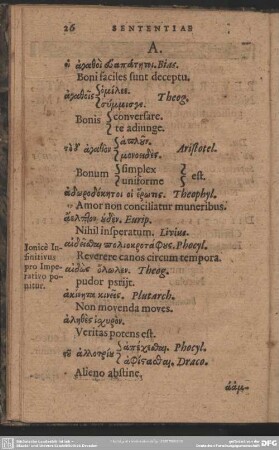 26 SENTENTIAE
A.
οἱ ἀγαθοὶ εὐαπάτητοι. Bias.
Boni faciles sunt deceptu.
ἀγαθοῖς { ὁμίλει.
σύμμισγε. Theog.
Bonis { conversare.
te adiunge.
τὸ δ' ἀγαθὸν { ἁπλοῦν.
μονοειδές. Aristotel.
Bonum { simplex
uniforme } est.
ἀδωροδόκητος οἱ ἔρωτες. Theophyl.
Amor non conciliatur muneribus.
ἄελπτον οὐδέν. Eurip.
Nihil insperatum. Livius.
Ionicè In-
finitivus
pro Impe-
rativo po-
nitur.
αἰδεῖσθαι πολιοκροτάφους. Phocyl.
Reverere canos circum tempora.
αἰδὼς ὄλωλεν. Theog.
pudor perijt.
ἀκίνητα κινεῖς. Plutarch.
Non movenda moves.
ἀληθὲς ἰσχυρόν.
Veritas potens est.
τῶν ἀλλοτρίων { ἀπέχεσθαι. Phocyl.
ἀφίστασθαι. Draco.
Alieno abstine.